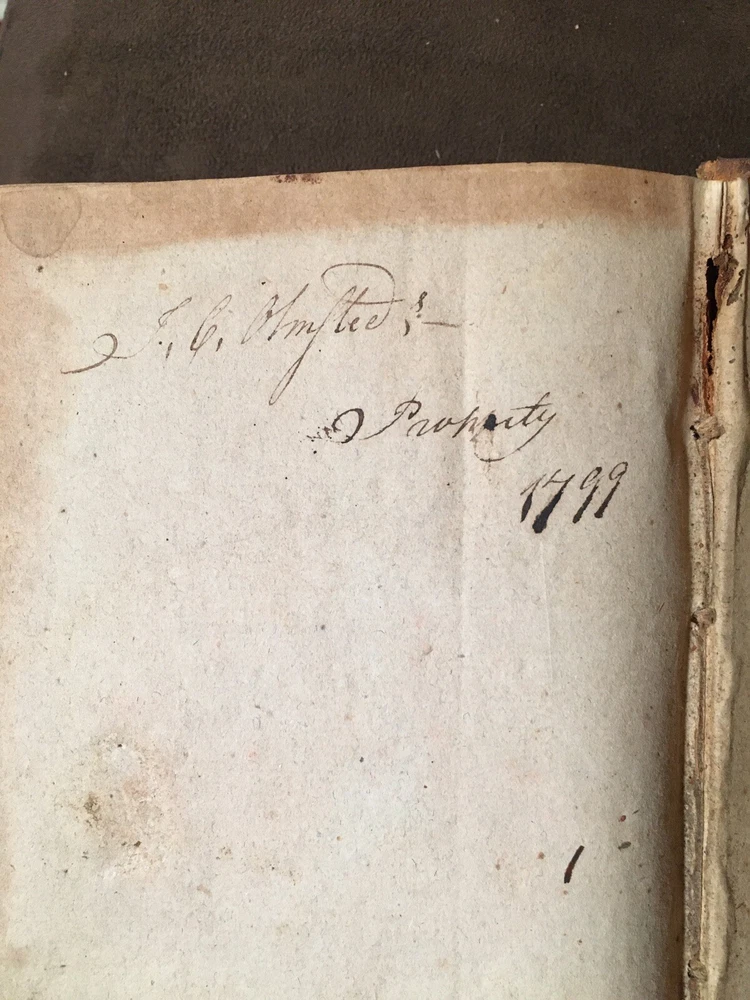 J. C. Olmsted's
Property
1799